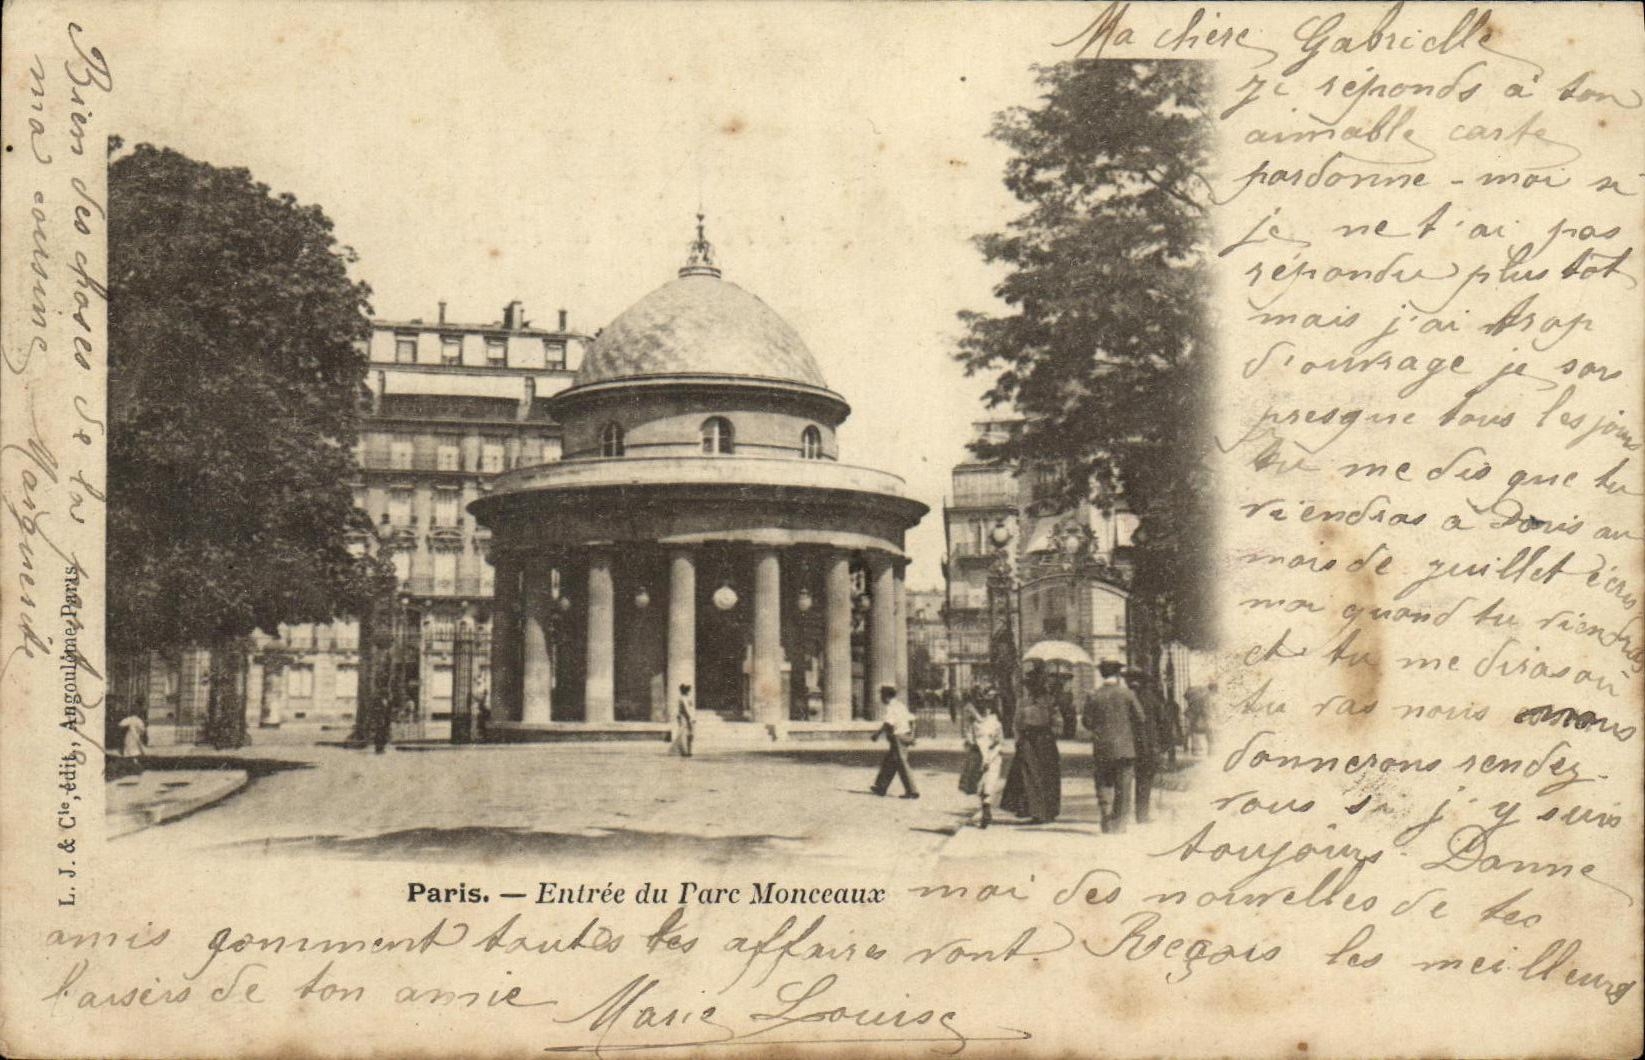 Ma chère Gabrielle
je réponds à ton
aimable carte
pardonne-moi si
je ne t'ai pas
répondu plus tôt
mais j'ai trop
d'ouvrage je sors
presque tous les jours
tu me dis que tu
viendras à Paris au
mois de juillet écris
moi quand tu viendras
et tu me diras où
tu vas nous nous
donnerons rendez-
vous si j'y suis
toujours. Donne
moi des nouvelles de tes
amis comment toutes les affaires vont. Reçois les meilleurs
baisers de ton amie
Marie Louise
Bien des choses de la part de
ma cousine Marguerite
Paris. — Entrée du Parc Monceaux
L. J. & Cie, édit, Angoulême-Paris